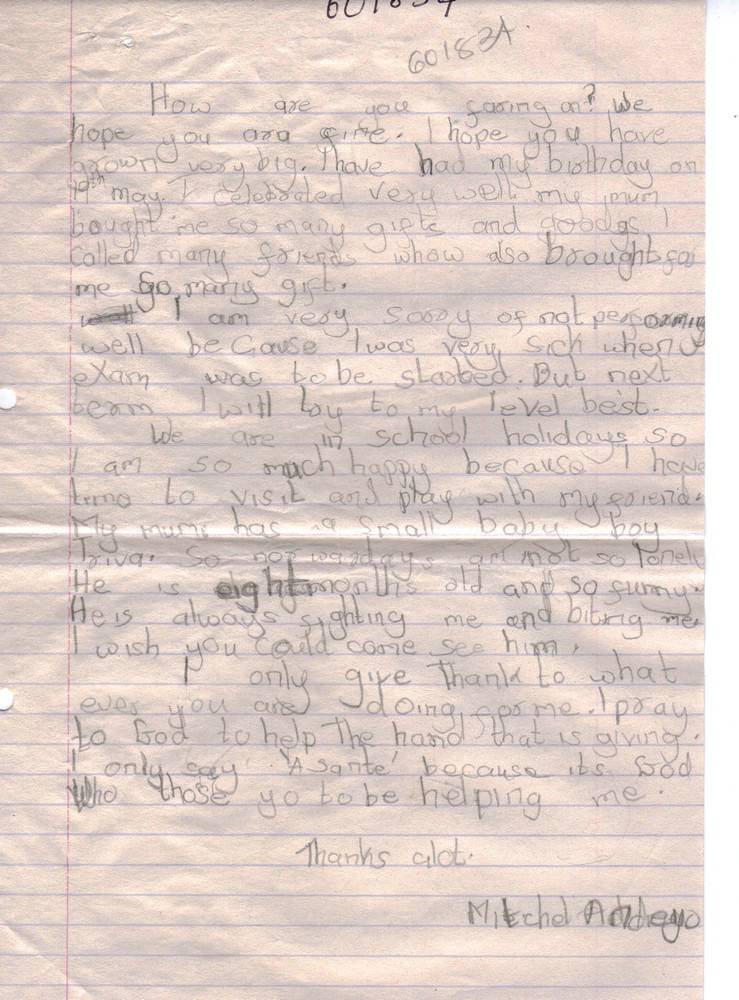 60183A.
How are you faring on? We
hope you are fine. I hope you have
grown very big. I have had my birthday on
19th may. I celebrated very well my mum
bought me so many gifts and goodgs I
called many friends whow also brought for
me so many gift.
I am very sorry of not performing
well because I was very sick when
exam was to be started. But next
term I will try to my level best.
We are in school holidays so
I am so much happy because I have
time to visit and play with my friend.
My mum has a small baby boy
Triva. So nowwardays am not so lonely
He is eight months old and so funny.
He is always fighting me and biting me.
I wish you could come see him.
I only give thank to what
ever you are doing for me. I pray
to God to help the hand that is giving.
I only say 'Asante' because its God
Who those yo to be helping me.
Thanks alot.
Mitchel